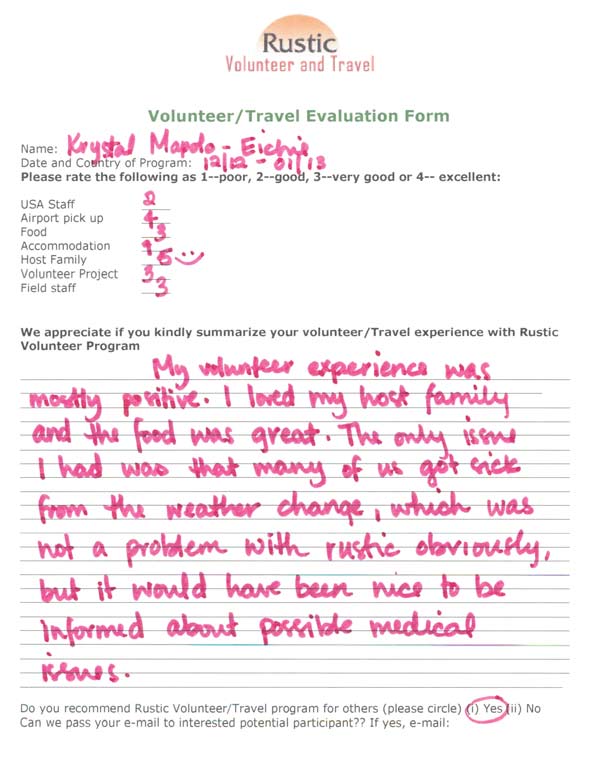 Rustic
Volunteer and Travel
Volunteer/Travel Evaluation Form
Name: Krystal Mapolo - Eichie
Date and Country of Program: 12/12 - 01/13
Please rate the following as 1--poor, 2--good, 3--very good or 4-- excellent:
USA Staff 2
Airport pick up 4
Food 3
Accommodation 4
Host Family 5
Volunteer Project 3
Field staff 3
We appreciate if you kindly summarize your volunteer/Travel experience with Rustic
Volunteer Program
My volunteer experience was
mostly positive. I loved my host family
and the food was great. The only issue
I had was that many of us got sick
from the weather change, which was
not a problem with rustic obviously,
but it would have been nice to be
informed about possible medical
issues.
Do you recommend Rustic Volunteer/Travel program for others (please circle) (i) Yes (ii) No
Can we pass your e-mail to interested potential participant?? If yes, e-mail: